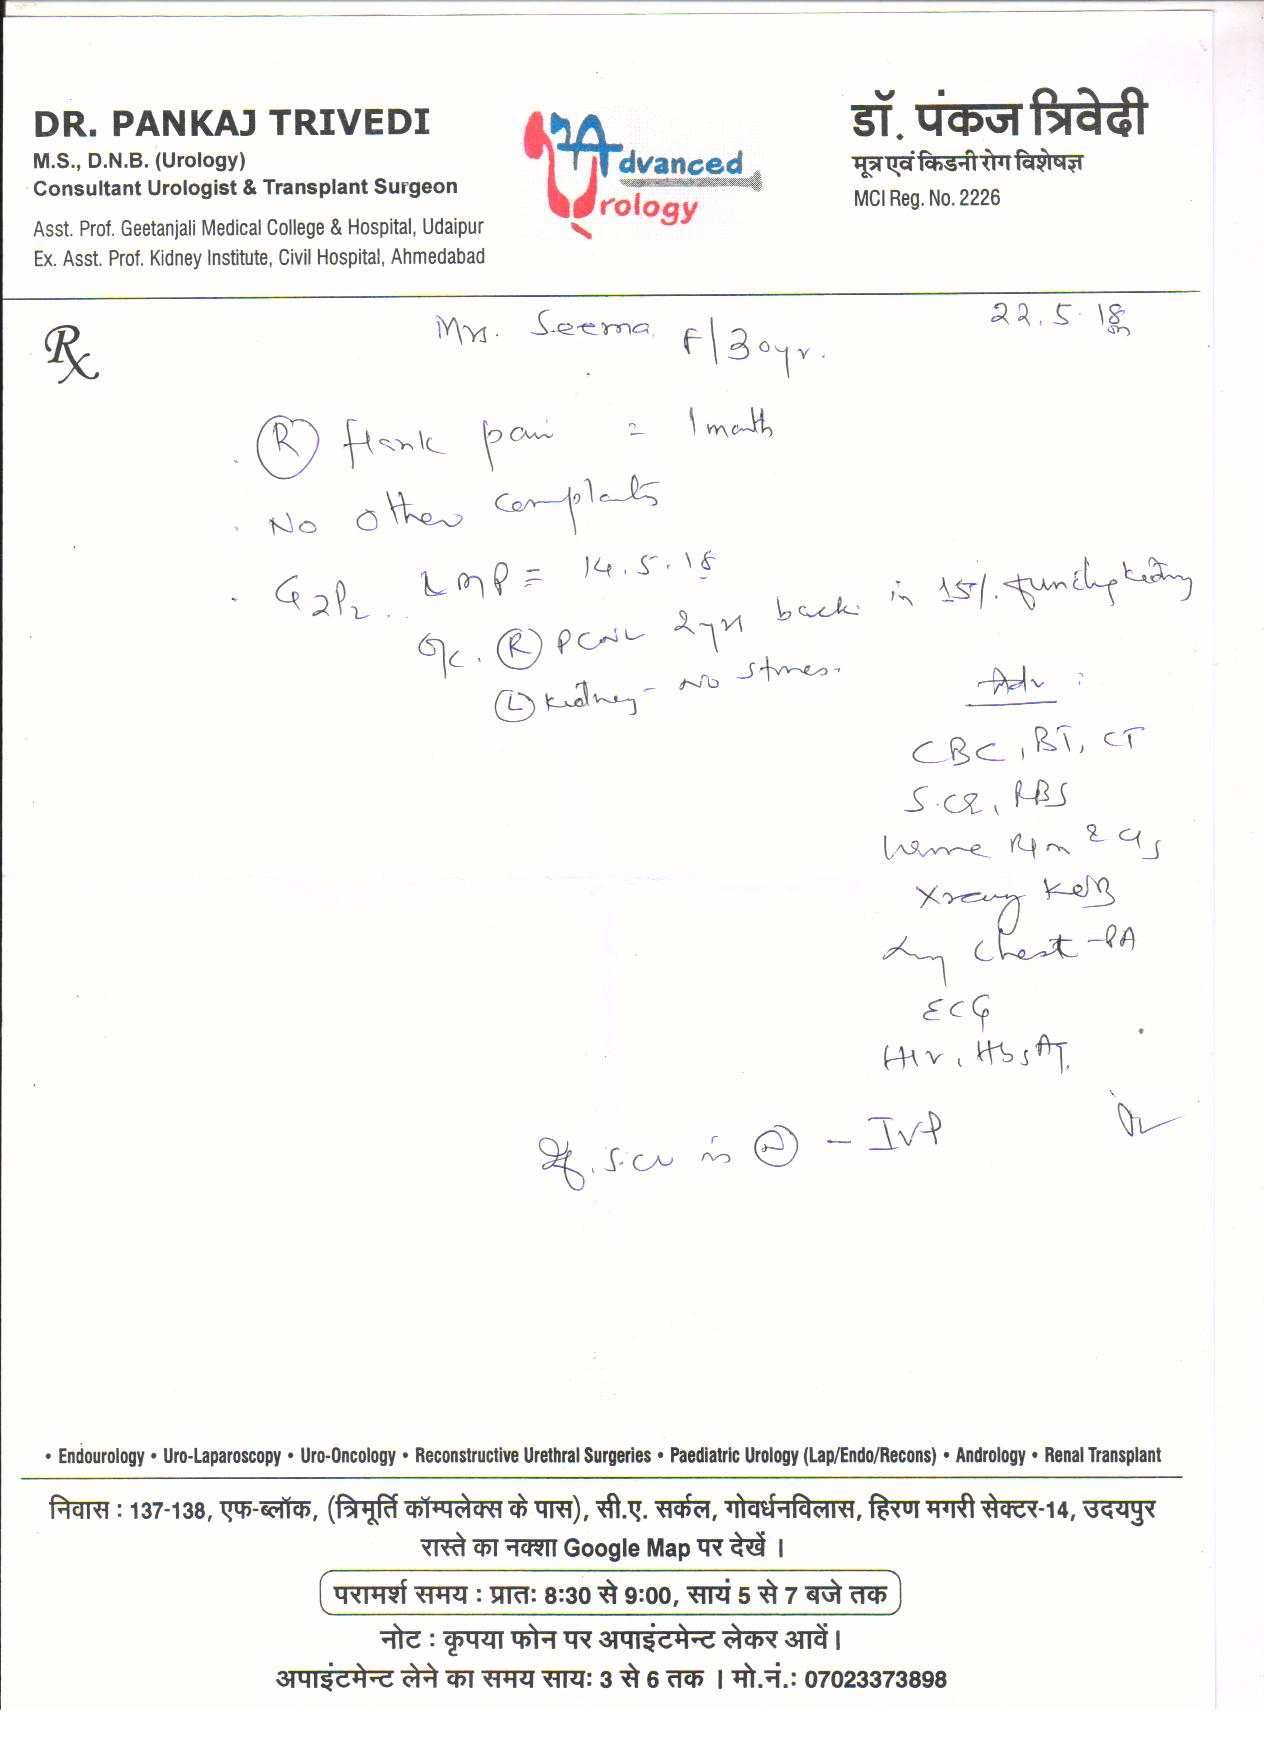 DR. PANKAJ TRIVEDI
M.S., D.N.B. (Urology)
Consultant Urologist & Transplant Surgeon
Asst. Prof. Geetanjali Medical College & Hospital, Udaipur
Ex. Asst. Prof. Kidney Institute, Civil Hospital, Ahmedabad
Advanced
Urology
डॉ. पंकज त्रिवेदी
मूत्र एवं किडनी रोग विशेषज्ञ
MCI Reg. No. 2226
Rx
22.5.18
Mrs. Seema F/30yr.
(R) flank pain = 1 month
No other complaints
G2P2. LMP = 14.5.18
(R) PCNL 2yrs back in 15%
(L) Kidney - No stones.
Adv :
CBC, BT, CT
S.Cr, RBS
Urine R/m & C/s
Xray KUB
Chest - PA
ECG
HIV, HbsAg.
If S.Cr is (N) - IVP
• Endourology • Uro-Laparoscopy • Uro-Oncology • Reconstructive Urethral Surgeries • Paediatric Urology (Lap/Endo/Recons) • Andrology • Renal Transplant
निवास : 137-138, एफ-ब्लॉक, (त्रिमूर्ति कॉम्पलेक्स के पास), सी.ए. सर्कल, गोवर्धनविलास, हिरण मगरी सेक्टर-14, उदयपुर
रास्ते का नक्शा Google Map पर देखें ।
परामर्श समय : प्रातः 8:30 से 9:00, सायं 5 से 7 बजे तक
नोट : कृपया फोन पर अपाइंटमेन्ट लेकर आवें ।
अपाइंटमेन्ट लेने का समय सायः 3 से 6 तक । मो.नं.: 07023373898